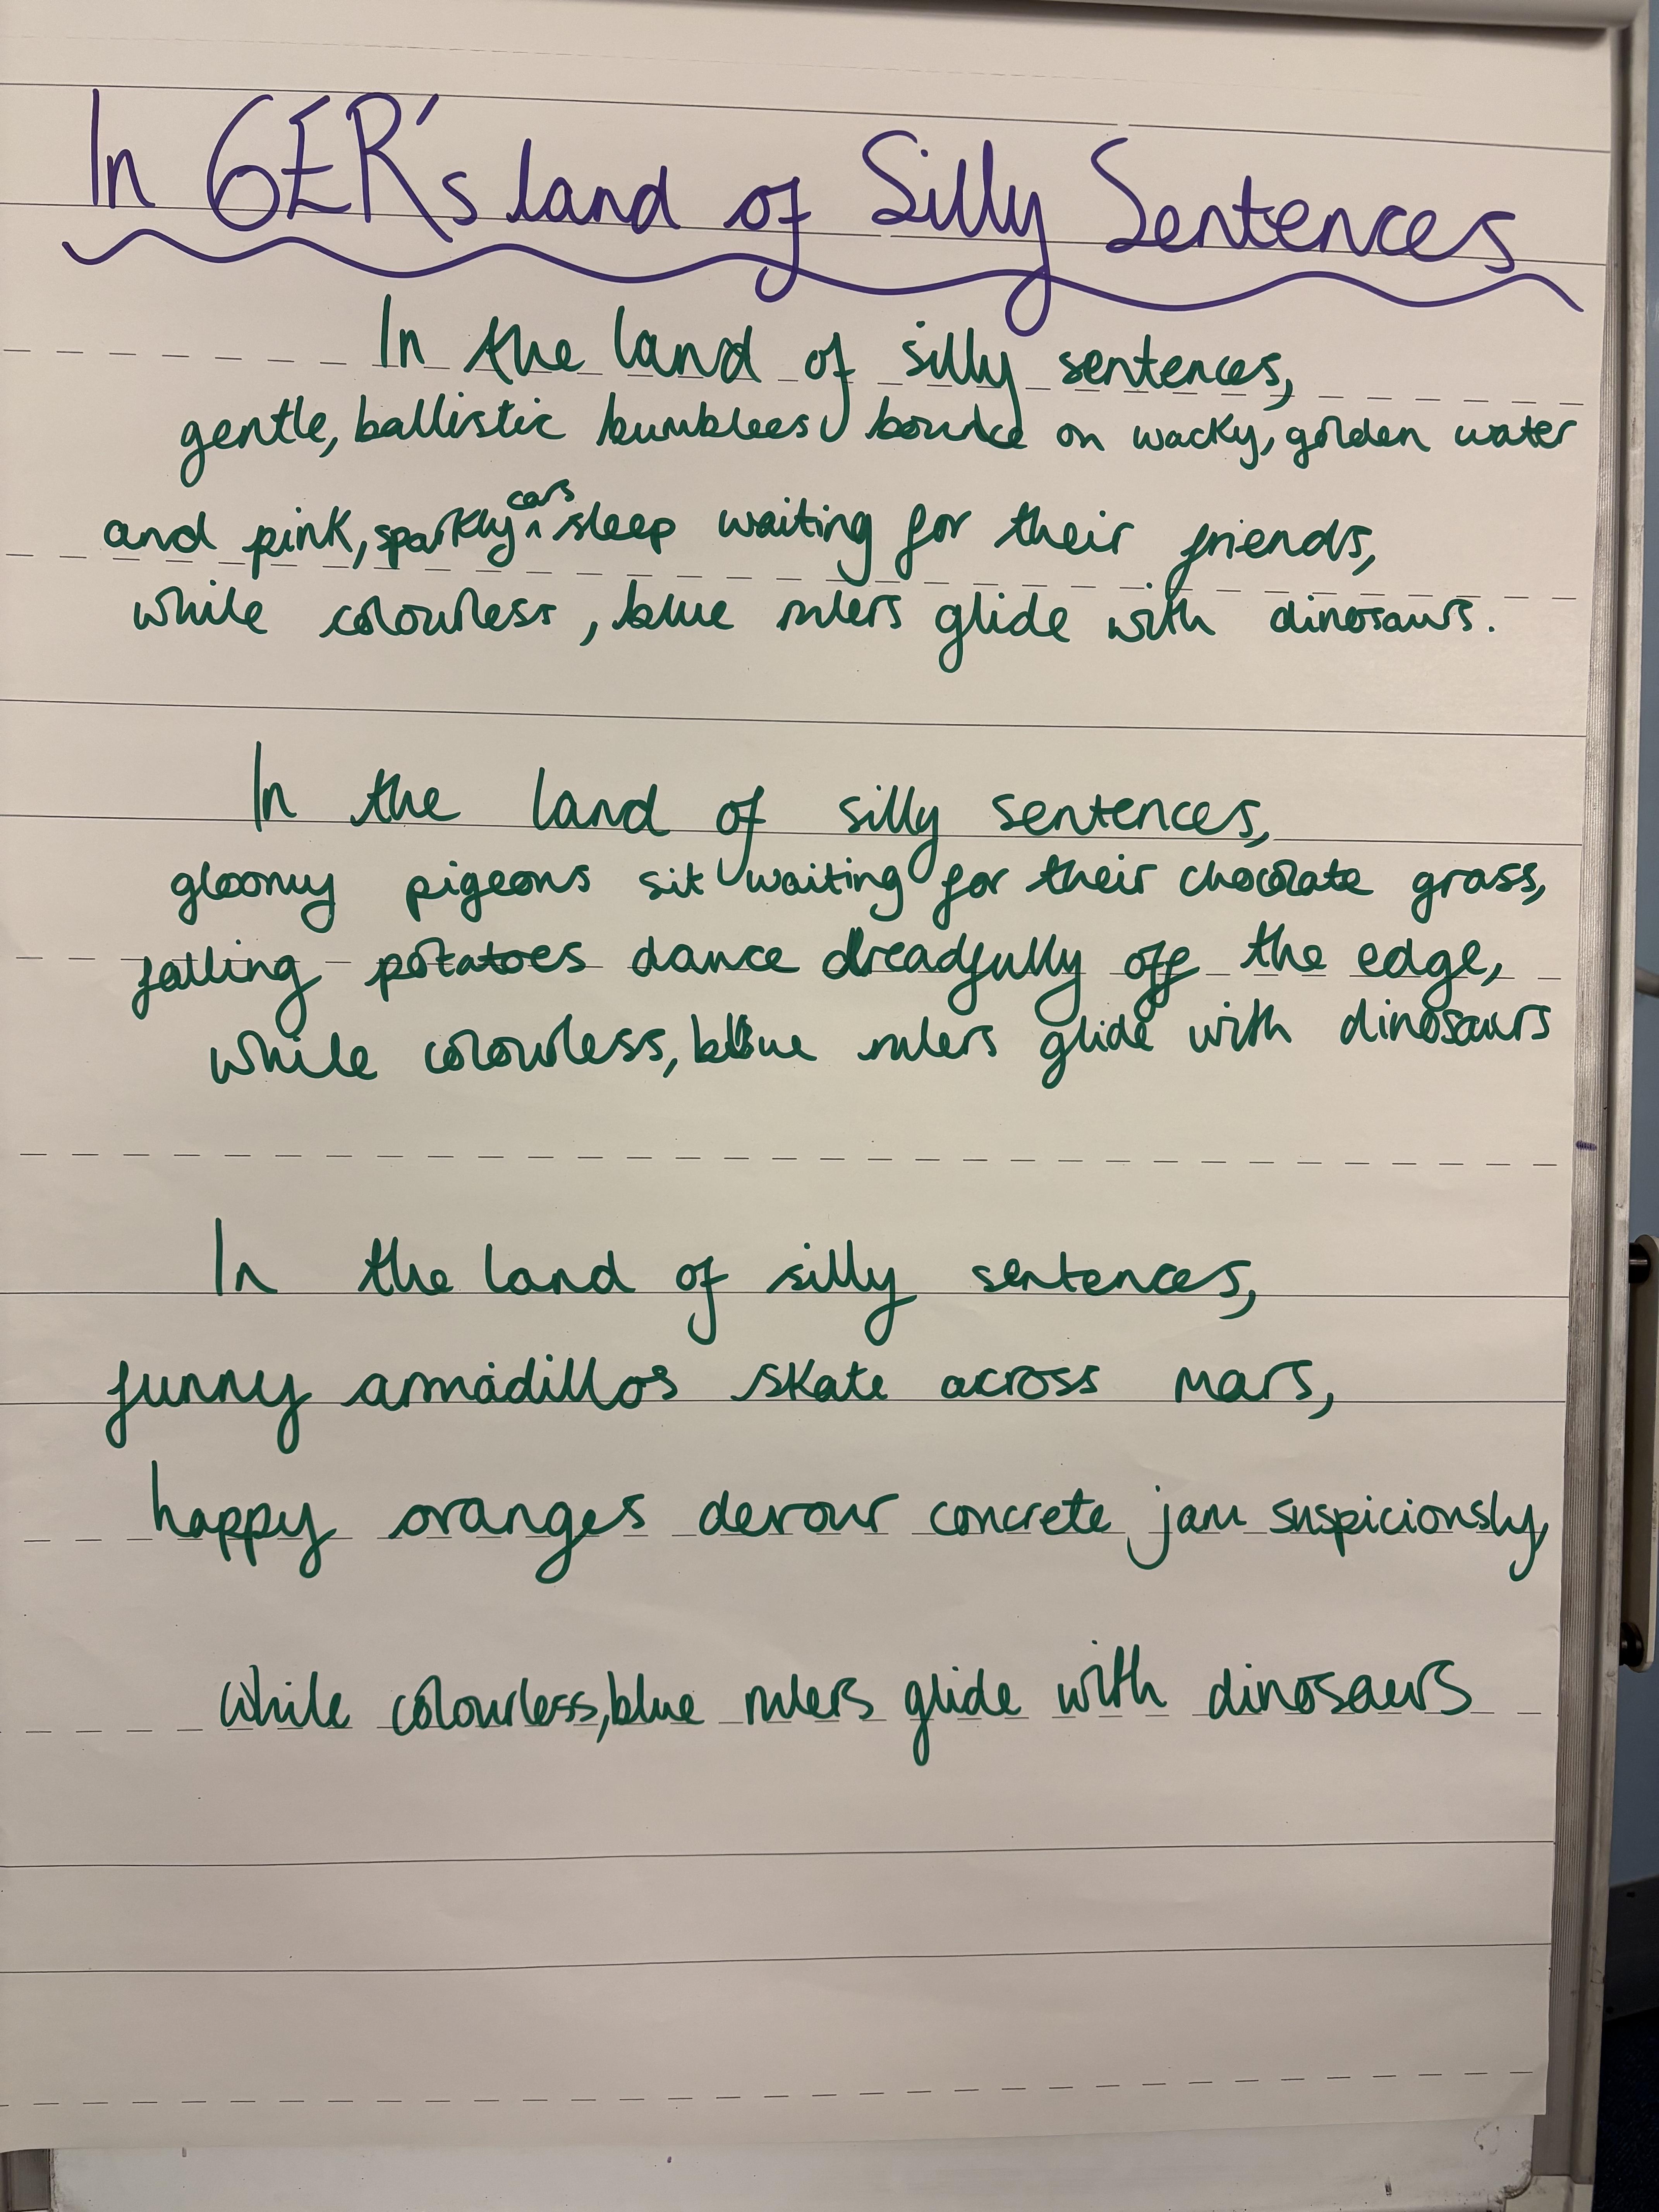 In 6ER's land of Silly Sentences
In the land of silly sentences,
gentle, ballistic bumblees bounce on wacky, golden water
and pink, sparkly cars sleep waiting for their friends,
while colourless, blue rulers glide with dinosaurs.
In the land of silly sentences,
gloomy pigeons sit waiting for their chocolate grass,
falling potatoes dance dreadfully off the edge,
while colourless, blue rulers glide with dinosaurs
In the land of silly sentences,
funny armadillos skate across mars,
happy oranges devour concrete jam suspiciously,
while colourless, blue rulers glide with dinosaurs